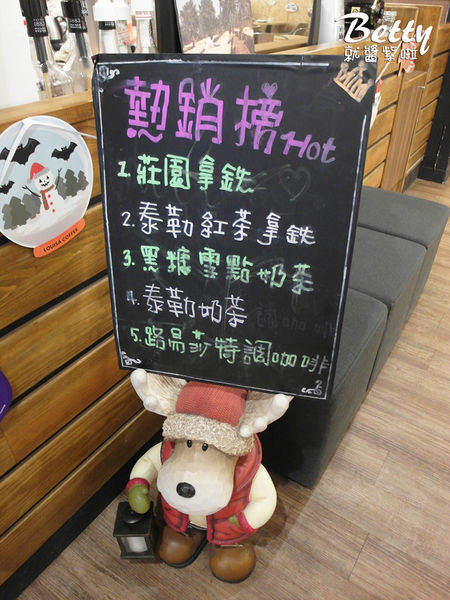 Betty
就醬紫啦
熱銷榜 Hot
1. 莊園拿鉄
2. 泰勒紅茶拿鉄
3. 黑糖雪點奶茶
4. 泰勒奶茶
5. 路易莎特調咖啡
LOUISA COFFEE